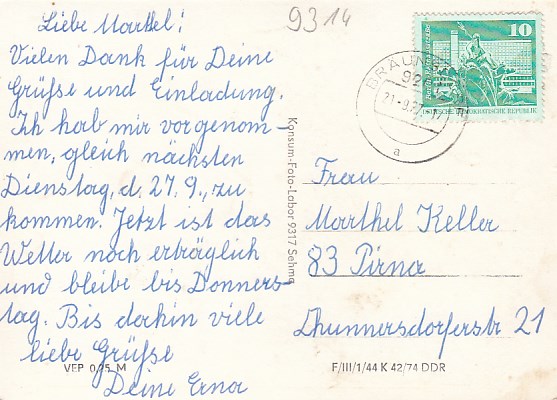 9314
Liebe Marthel!
Vielen Dank für Deine
Grüße und Einladung.
Ich hab mir vorgenom-
men, gleich nächsten
Dienstag, d. 27.9., zu
kommen. Jetzt ist das
Wetter noch erträglich
und bleibe bis Donners-
tag. Bis dahin viele
liebe Grüße
Deine Erna
VEP 0,25 M
Konsum-Foto-Labor 9317 Sehma
10
DEUTSCHE DEMOKRATISCHE REPUBLIK
a
Frau
Marthel Keller
83 Pirna
Thunnersdorferstr 21
F/III/1/44 K 42/74 DDR